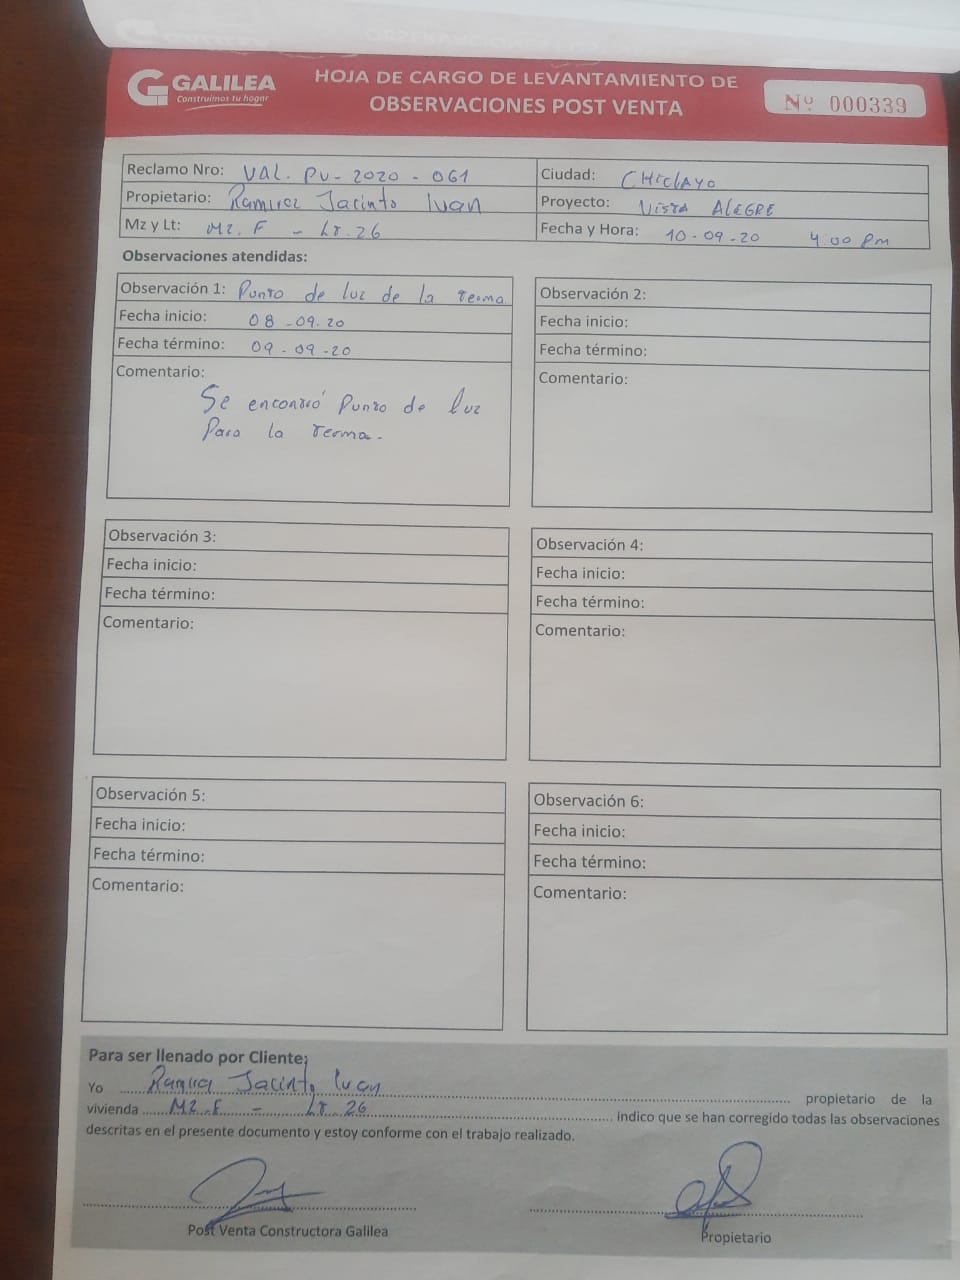 GALILEA
Construimos tu hogar
HOJA DE CARGO DE LEVANTAMIENTO DE
OBSERVACIONES POST VENTA
Nº 000339
Reclamo Nro: VAL. PV - 2020 - 061
Ciudad: CHICLAYO
Propietario: Ramirez Jacinto Ivan
Proyecto: VISTA ALEGRE
Mz y Lt: MZ. F - LT. 26
Fecha y Hora: 10-09-20 4:00 Pm
Observaciones atendidas:
Observación 1: Punto de luz de la terma
Fecha inicio: 08-09-20
Fecha término: 09-09-20
Comentario:
Se encontró Punto de luz
Para la terma.
Observación 2:
Fecha inicio:
Fecha término:
Comentario:
Observación 3:
Fecha inicio:
Fecha término:
Comentario:
Observación 4:
Fecha inicio:
Fecha término:
Comentario:
Observación 5:
Fecha inicio:
Fecha término:
Comentario:
Observación 6:
Fecha inicio:
Fecha término:
Comentario:
Para ser llenado por Cliente:
Yo Ramirez Jacinto Ivan propietario de la
vivienda MZ. F - LT. 26 indico que se han corregido todas las observaciones
descritas en el presente documento y estoy conforme con el trabajo realizado.
Post Venta Constructora Galilea
Propietario